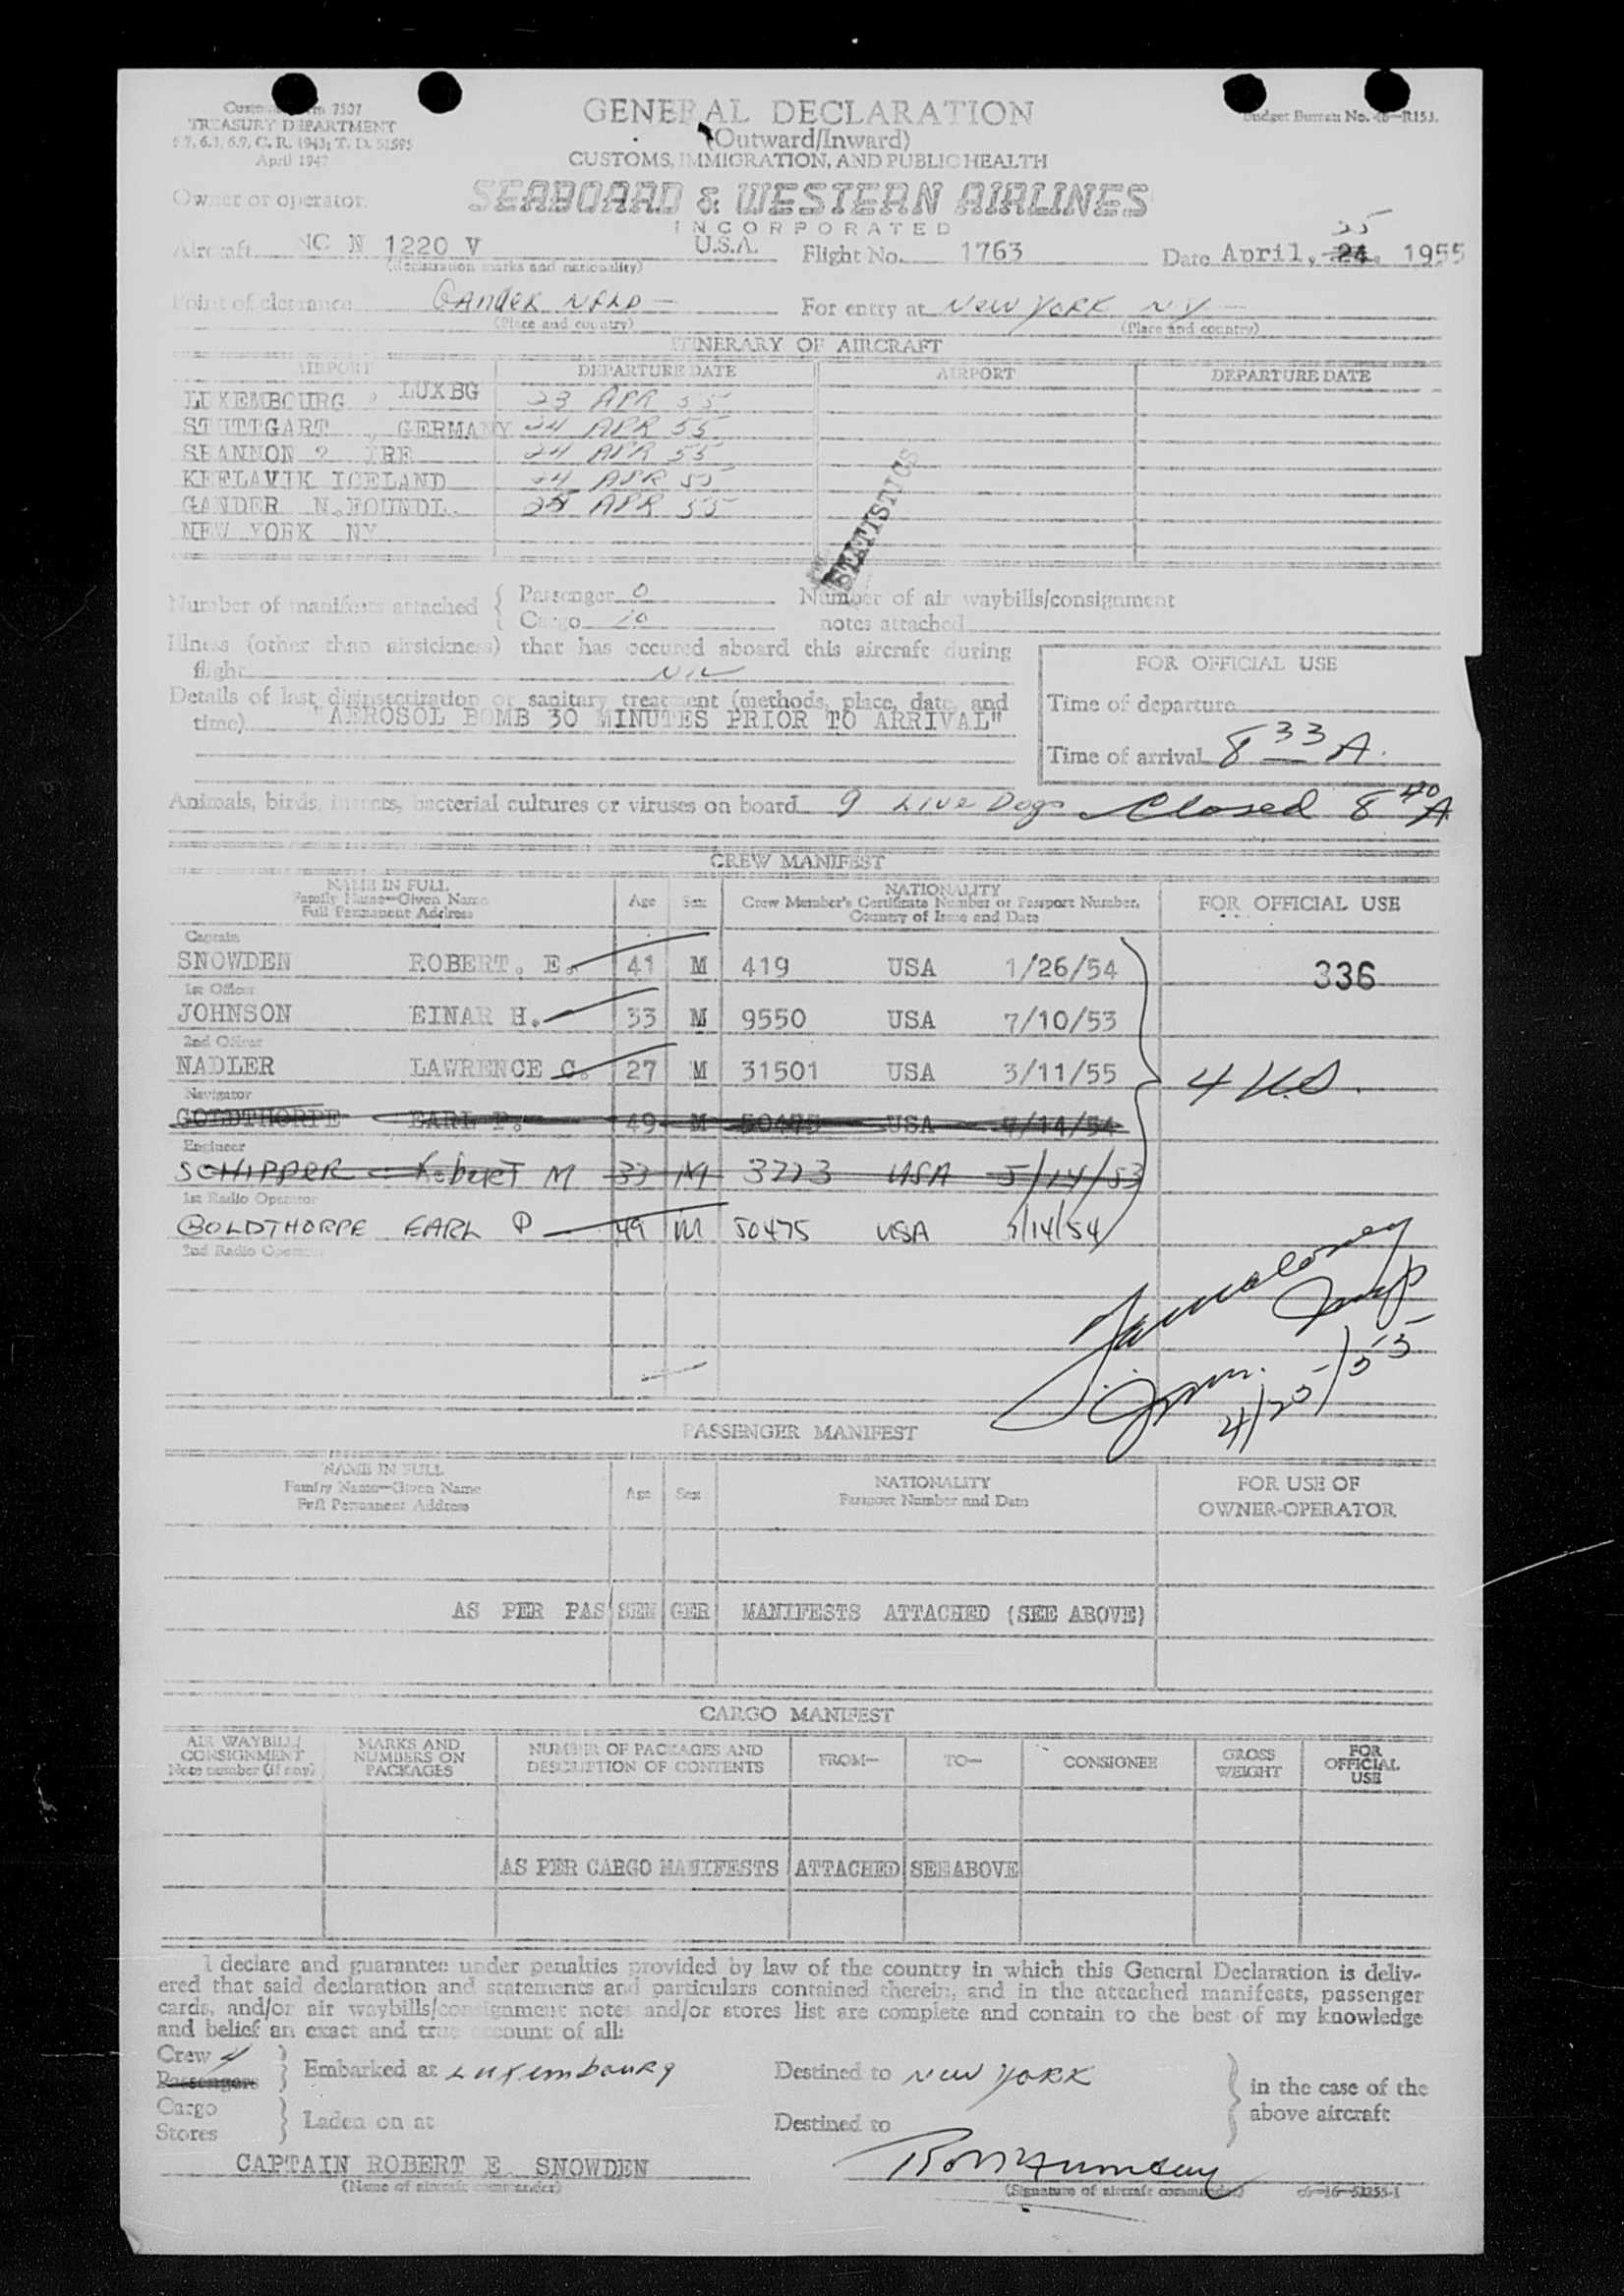 Customs Form 7507
TREASURY DEPARTMENT
6.7, 6.1, 6.9, C. R. 1943; T. D. 51595
April 1947
GENERAL DECLARATION
(Outward/Inward)
CUSTOMS, IMMIGRATION, AND PUBLIC HEALTH
Budget Bureau No. 48-R153.
Owner or operator SEABOARD & WESTERN AIRLINES
INCORPORATED
25
Aircraft NC N 1220 V U.S.A. Flight No. 1763 Date April, 24, 1955
(Registration marks and nationality)
Point of clearance GANDER NFLD — For entry at NEW YORK NY —
(Place and country) (Place and country)
ITINERARY OF AIRCRAFT
AIRPORT DEPARTURE DATE AIRPORT DEPARTURE DATE
LUXEMBOURG , LUXBG 23 APR 55
STUTTGART , GERMANY 24 APR 55
SHANNON ? IRE 24 APR 55
KEFLAVIK ICELAND 24 APR 55
GANDER N.FOUNDL. 25 APR 55
NEW YORK NY
STATISTICS
Number of manifests attached { Passenger 0 Number of air waybills/consignment
{ Cargo 10 notes attached
Illness (other than airsickness) that has occured aboard this aircraft during
flight NIL
FOR OFFICIAL USE
Details of last disinsectization or sanitary treatment (methods, place, date, and
time) "AEROSOL BOMB 30 MINUTES PRIOR TO ARRIVAL"
Time of departure
Time of arrival 8 33 A.
Animals, birds, insects, bacterial cultures or viruses on board 9 LIVE Dogs Closed 8 40 A
CREW MANIFEST
NAME IN FULL
Family Name—Given Name
Full Permanent Address
Age Sex
NATIONALITY
Crew Member's Certificate Number or Passport Number,
Country of Issue and Date
FOR OFFICIAL USE
Captain
SNOWDEN ROBERT. E. 41 M 419 USA 1/26/54 336
1st Officer
JOHNSON EINAR H. 33 M 9550 USA 7/10/53
2nd Officer
NADLER LAWRENCE C. 27 M 31501 USA 3/11/55 4 U.S.
Navigator
GOLDTHORPE EARL P. 49 M 50475 USA /14/54
Engineer
SCHIPPER Robert M 33 M 3773 USA 5/14/53
1st Radio Operator
GOLDTHORPE EARL P 49 M 50475 USA /14/54
2nd Radio Operator
Insp
Imm.
4/25/55
PASSENGER MANIFEST
NAME IN FULL
Family Name—Given Name
Full Permanent Address
Age Sex
NATIONALITY
Passport Number and Date
FOR USE OF
OWNER-OPERATOR
AS PER PASSENGER MANIFESTS ATTACHED (SEE ABOVE)
CARGO MANIFEST
AIR WAYBILL/
CONSIGNMENT
Note number (if any)
MARKS AND
NUMBERS ON
PACKAGES
NUMBER OF PACKAGES AND
DESCRIPTION OF CONTENTS
FROM— TO— CONSIGNEE
GROSS
WEIGHT
FOR
OFFICIAL
USE
AS PER CARGO MANIFESTS ATTACHED SEE ABOVE
I declare and guarantee under penalties provided by law of the country in which this General Declaration is deliv-
ered that said declaration and statements and particulars contained therein, and in the attached manifests, passenger
cards, and/or air waybills/consignment notes and/or stores list are complete and contain to the best of my knowledge
and belief an exact and true account of all:
Crew 4
Passengers } Embarked at Luxembourg Destined to New YORK } in the case of the
Cargo
Stores } Laden on at Destined to above aircraft
CAPTAIN ROBERT E. SNOWDEN
(Name of aircraft commander) (Signature of aircraft commander) c6-16-51255-1